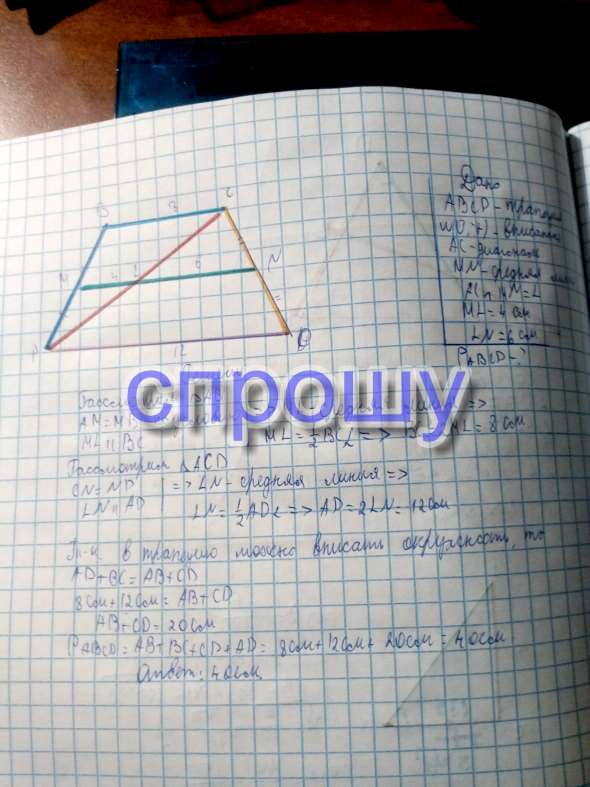 B 8 C
M 4 L 6 N
A 12 D
Дано
ABCD - трапеция
AC - диагональ
MN - средняя линия
AC ∩ MN = L
ML = 4 см
LN = 6 см
P ABCD - ?
спрошу
AM = MB
ML || BC
ML = 1/2 BC => ML = 8 см
Рассмотрим △ACD
CN = ND | => LN - средняя линия =>
LN || AD LN = 1/2 AD => AD = 2LN = 12см
Т.к в трапецию можно вписать окружность, то
AD + BC = AB + CD
8см + 12см = AB + CD
AB + CD = 20см
P ABCD = AB + BC + CD + AD = 8см + 12см + 20см = 40см
Ответ: 40см.